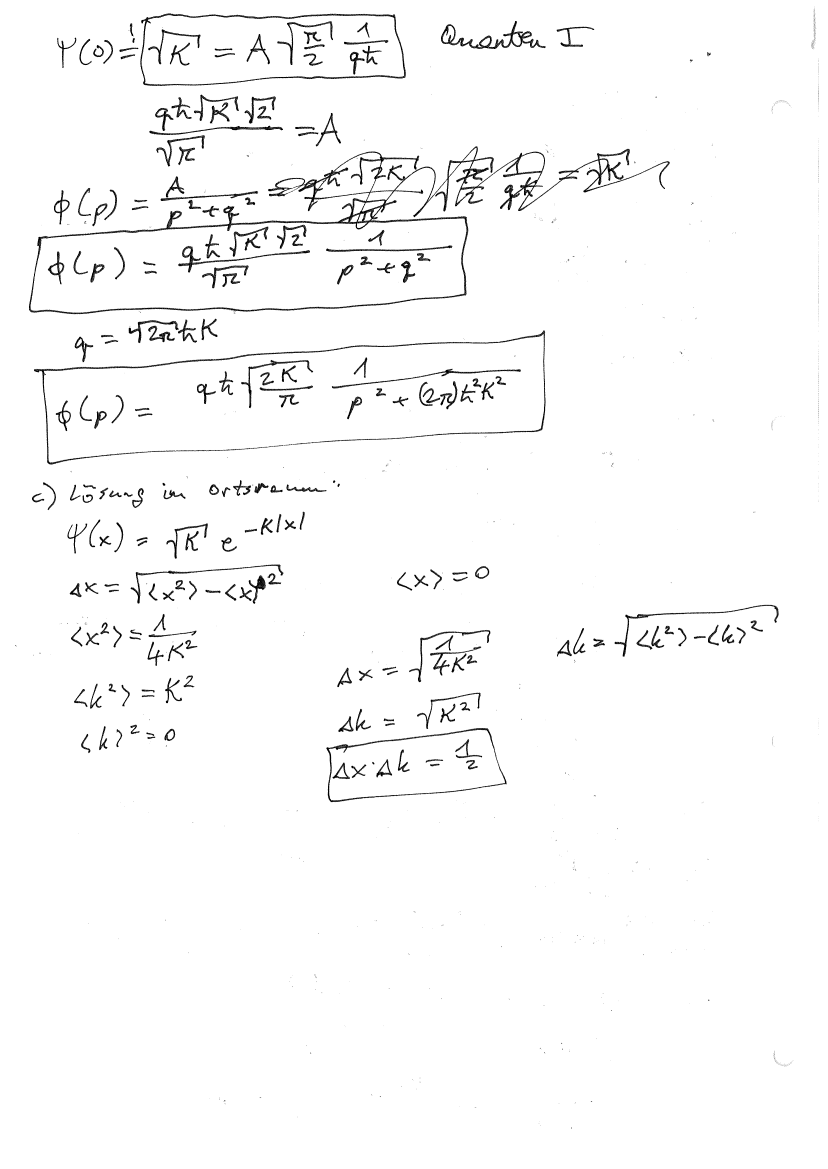 Ψ(0) =! √K = A √(π/2) 1/(qħ) Quanten I
(qħ √K √2)/√π = A
ϕ(p) = A/(p² + q²) = qħ √(2K)/√π √(π/2) 1/(qħ) = √K
ϕ(p) = (qħ √K √2)/√π 1/(p² + q²)
q = √(2π) ħK
ϕ(p) = qħ √(2K/π) 1/(p² + (2π)ħ²K²)
c) Lösung im Ortsraum:
Ψ(x) = √K e^(-K|x|)
Δx = √(<x²> - <x>²) <x> = 0
<x²> = 1/(4K²) Δx = √(1/(4K²)) Δk = √(<k²> - <k>²)
<k²> = K² Δk = √(K²)
<k>² = 0 Δx·Δk = 1/2